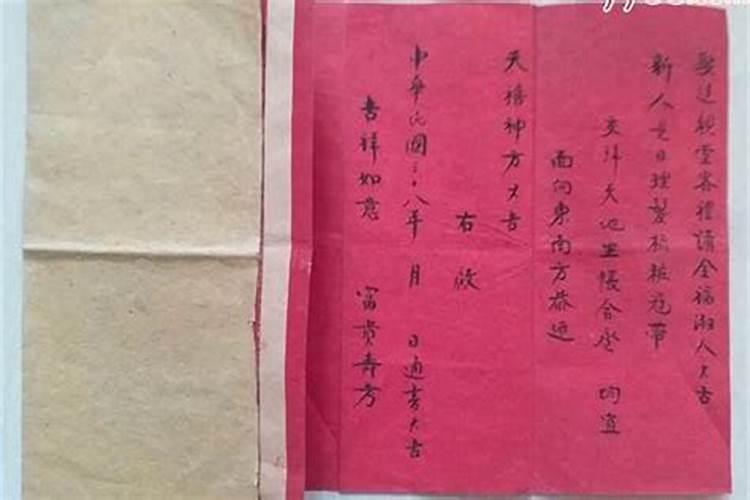 娶送親堂客禮請全福淑人大吉
新人是日理髮梳粧冠帶
交拜天地坐帳合卺 均宜
面向東南方恭迎
天禧神方大吉
右啟
中華民國三十八年 月 日通書大吉
吉祥如意 富貴壽考